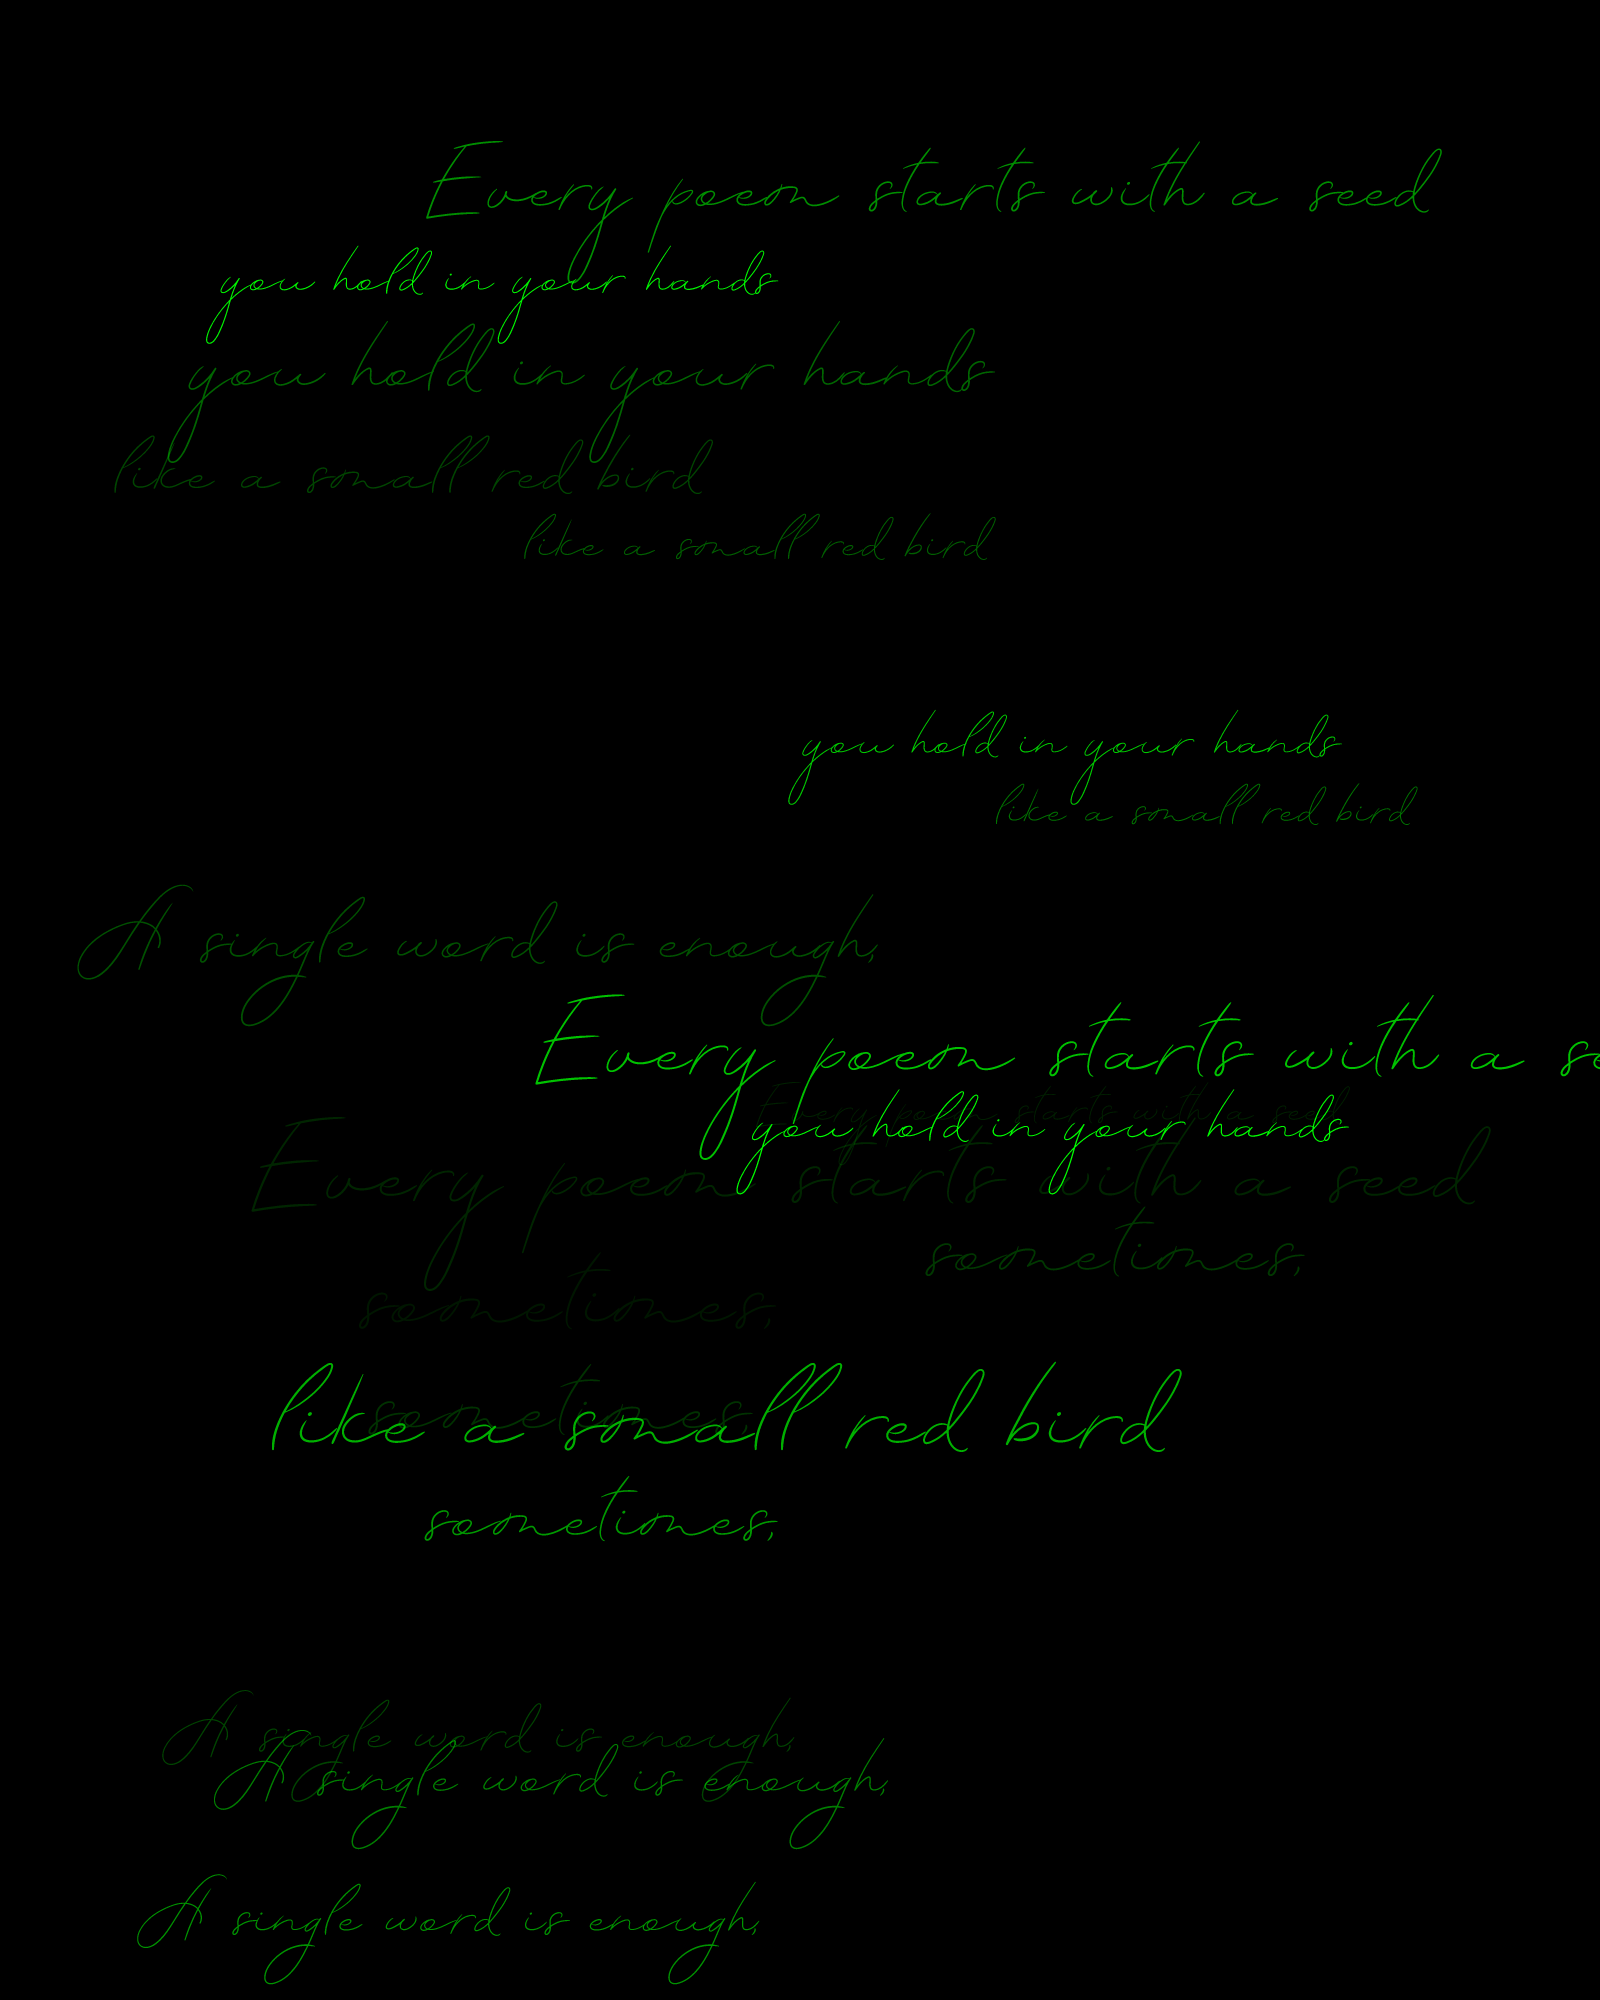 Every poem starts with a seed
you hold in your hands
you hold in your hands
like a small red bird
like a small red bird
you hold in your hands
like a small red bird
A single word is enough,
Every poem starts with a se
Every poem starts with a seed
you hold in your hands
Every poem starts with a seed
sometimes,
sometimes,
sometimes,
like a small red bird
sometimes,
A single word is enough,
A single word is enough,
A single word is enough,